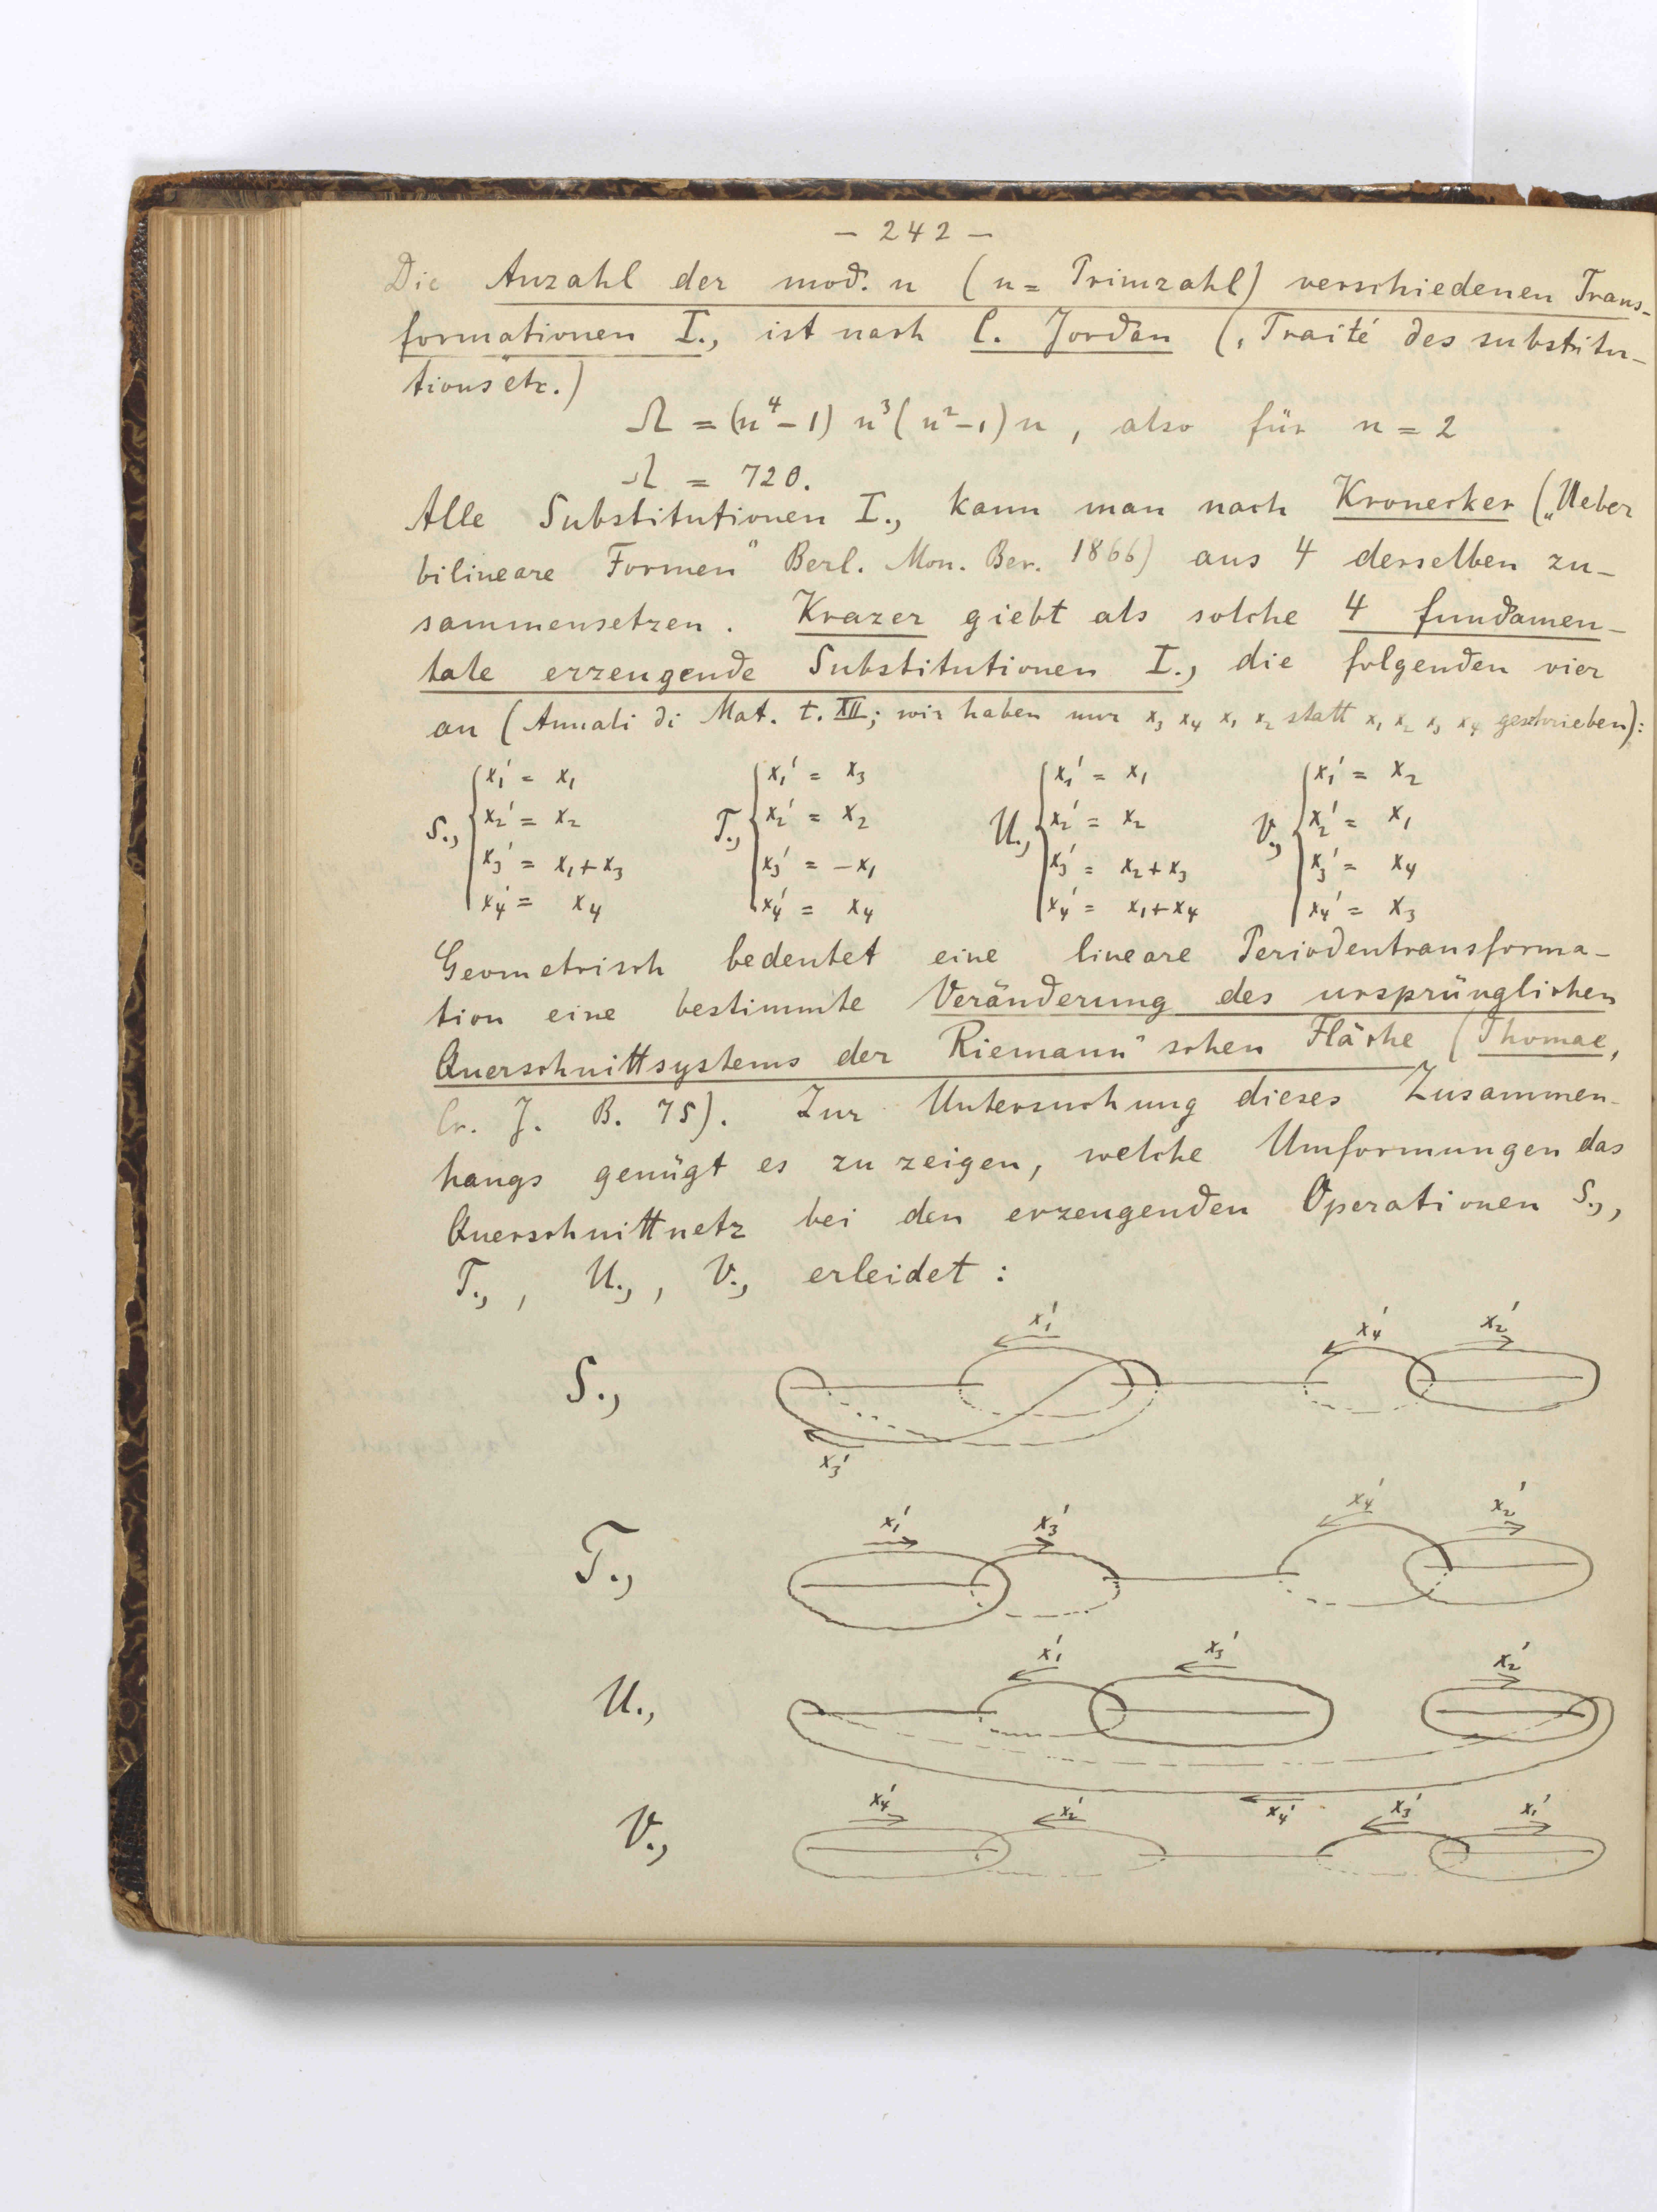 – 242 –
Die Anzahl der mod. n (n = Primzahl) verschiedenen Trans-
formationen I., ist nach C. Jordan („Traité des substitu-
tions etc.)
Ω = (n⁴-1) n³ (n²-1) n , also für n = 2
Ω = 720.
Alle Substitutionen I., kann man nach Kronecker („Ueber
bilineare Formen" Berl. Mon. Ber. 1866) aus 4 derselben zu-
sammensetzen. Krazer giebt als solche 4 fundamen-
tale erzeugende Substitutionen I., die folgenden vier
an (Annali di Mat. t. XII; wir haben nur x₃ x₄ x₁ x₂ statt x₁ x₂ x₃ x₄ geschrieben):
x₁' = x₁ x₁' = x₃ x₁' = x₁ x₁' = x₂
x₂' = x₂ x₂' = x₂ x₂' = x₂ x₂' = x₁
S., T., U., V.,
x₃' = x₁+x₃ x₃' = -x₁ x₃' = x₂+x₃ x₃' = x₄
x₄' = x₄ x₄' = x₄ x₄' = x₁+x₄ x₄' = x₃
Geometrisch bedeutet eine lineare Periodentransforma-
tion eine bestimmte Veränderung des ursprünglichen
Querschnittsystems der Riemann'schen Fläche (Thomae,
Cr. J. B. 75). Zur Untersuchung dieses Zusammen-
hangs genügt es zu zeigen, welche Umformungen das
Querschnittnetz bei den erzeugenden Operationen S.,,
T., , U., , V., erleidet :
x₁' x₄' x₂'
S.,
x₃'
x₁' x₃' x₄' x₂'
T.,
x₁' x₃' x₂'
U.,
x₄'
x₄' x₂' x₃' x₁'
V.,